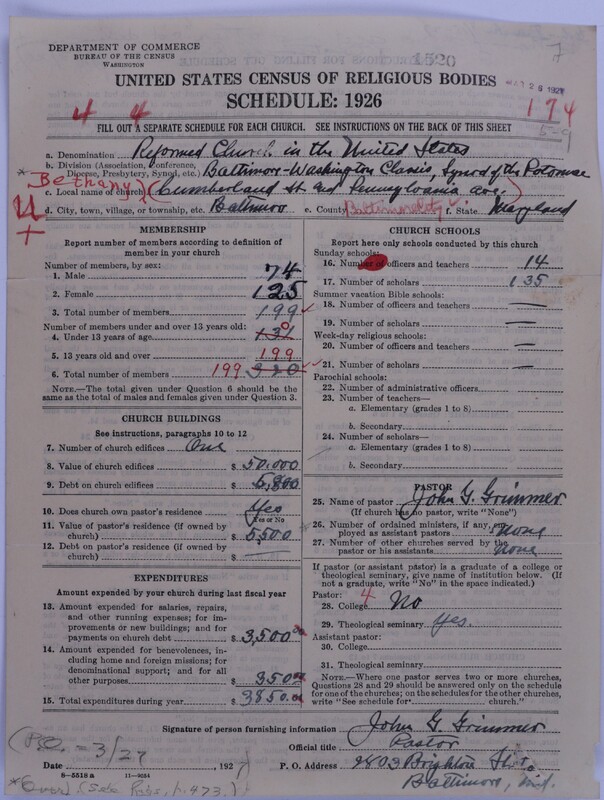 DEPARTMENT OF COMMERCE
BUREAU OF THE CENSUS
WASHINGTON
1520
7
UNITED STATES CENSUS OF RELIGIOUS BODIES
SCHEDULE: 1926
4 4
174
FILL OUT A SEPARATE SCHEDULE FOR EACH CHURCH. SEE INSTRUCTIONS ON THE BACK OF THIS SHEET
a. Denomination Reformed Church in the United States
b. Division (Association, Conference, Diocese, Presbytery, Synod, etc.) Baltimore-Washington Classis, Synod of the Potomac
Bethany
c. Local name of church (Cumberland St. and Pennsylvania ave.)
d. City, town, village, or township, etc. Baltimore e. County Baltimore City f. State Maryland
MEMBERSHIP
Report number of members according to definition of member in your church
Number of members, by sex:
1. Male 74
2. Female 125
3. Total number of members 199
Number of members under and over 13 years old:
4. Under 13 years of age 131 0
5. 13 years old and over 199
6. Total number of members 199 320
NOTE.—The total given under Question 6 should be the
same as the total of males and females given under Question 3.
CHURCH BUILDINGS
See instructions, paragraphs 10 to 12
7. Number of church edifices One
8. Value of church edifices $ 50,000
9. Debt on church edifices $ 5,800
10. Does church own pastor's residence Yes
Yes or No
11. Value of pastor's residence (if owned by
church) $ 5,500
12. Debt on pastor's residence (if owned by
church) $
EXPENDITURES
Amount expended by your church during last fiscal year
13. Amount expended for salaries, repairs,
and other running expenses; for im-
provements or new buildings; and for
payments on church debt $ 3,500.00
14. Amount expended for benevolences,
including home and foreign missions; for
denominational support; and for all
other purposes $ 350.00
15. Total expenditures during year $ 3850.00
CHURCH SCHOOLS
Report here only schools conducted by this church
Sunday schools:
16. Number of officers and teachers 14
17. Number of scholars 135
Summer vacation Bible schools:
18. Number of officers and teachers —
19. Number of scholars —
Week-day religious schools:
20. Number of officers and teachers —
21. Number of scholars —
Parochial schools:
22. Number of administrative officers
23. Number of teachers—
a. Elementary (grades 1 to 8)
b. Secondary
24. Number of scholars—
a. Elementary (grades 1 to 8)
b. Secondary
PASTOR
25. Name of pastor John G. Grimmer
(If church has no pastor, write "None")
26. Number of ordained ministers, if any, em-
ployed as assistant pastors none
27. Number of other churches served by the
pastor or his assistants none
If pastor (or assistant pastor) is a graduate of a college or
theological seminary, give name of institution below. (If
not a graduate, write "No" in the space indicated.)
Pastor: 4
28. College No
29. Theological seminary Yes.
Assistant pastor:
30. College
31. Theological seminary
NOTE.—Where one pastor serves two or more churches,
Questions 28 and 29 should be answered only on the schedule
for one of the churches; on the schedules for the other churches,
write "See schedule for church."
Signature of person furnishing information John G. Grimmer
Official title Pastor
P. O. Address 2803 Brighton St.
Baltimore, Md.
3/27
Date , 1927
8—5518 a 11—9054